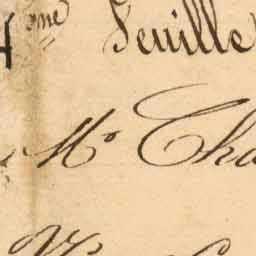 4ème Feuille
Mr Cha